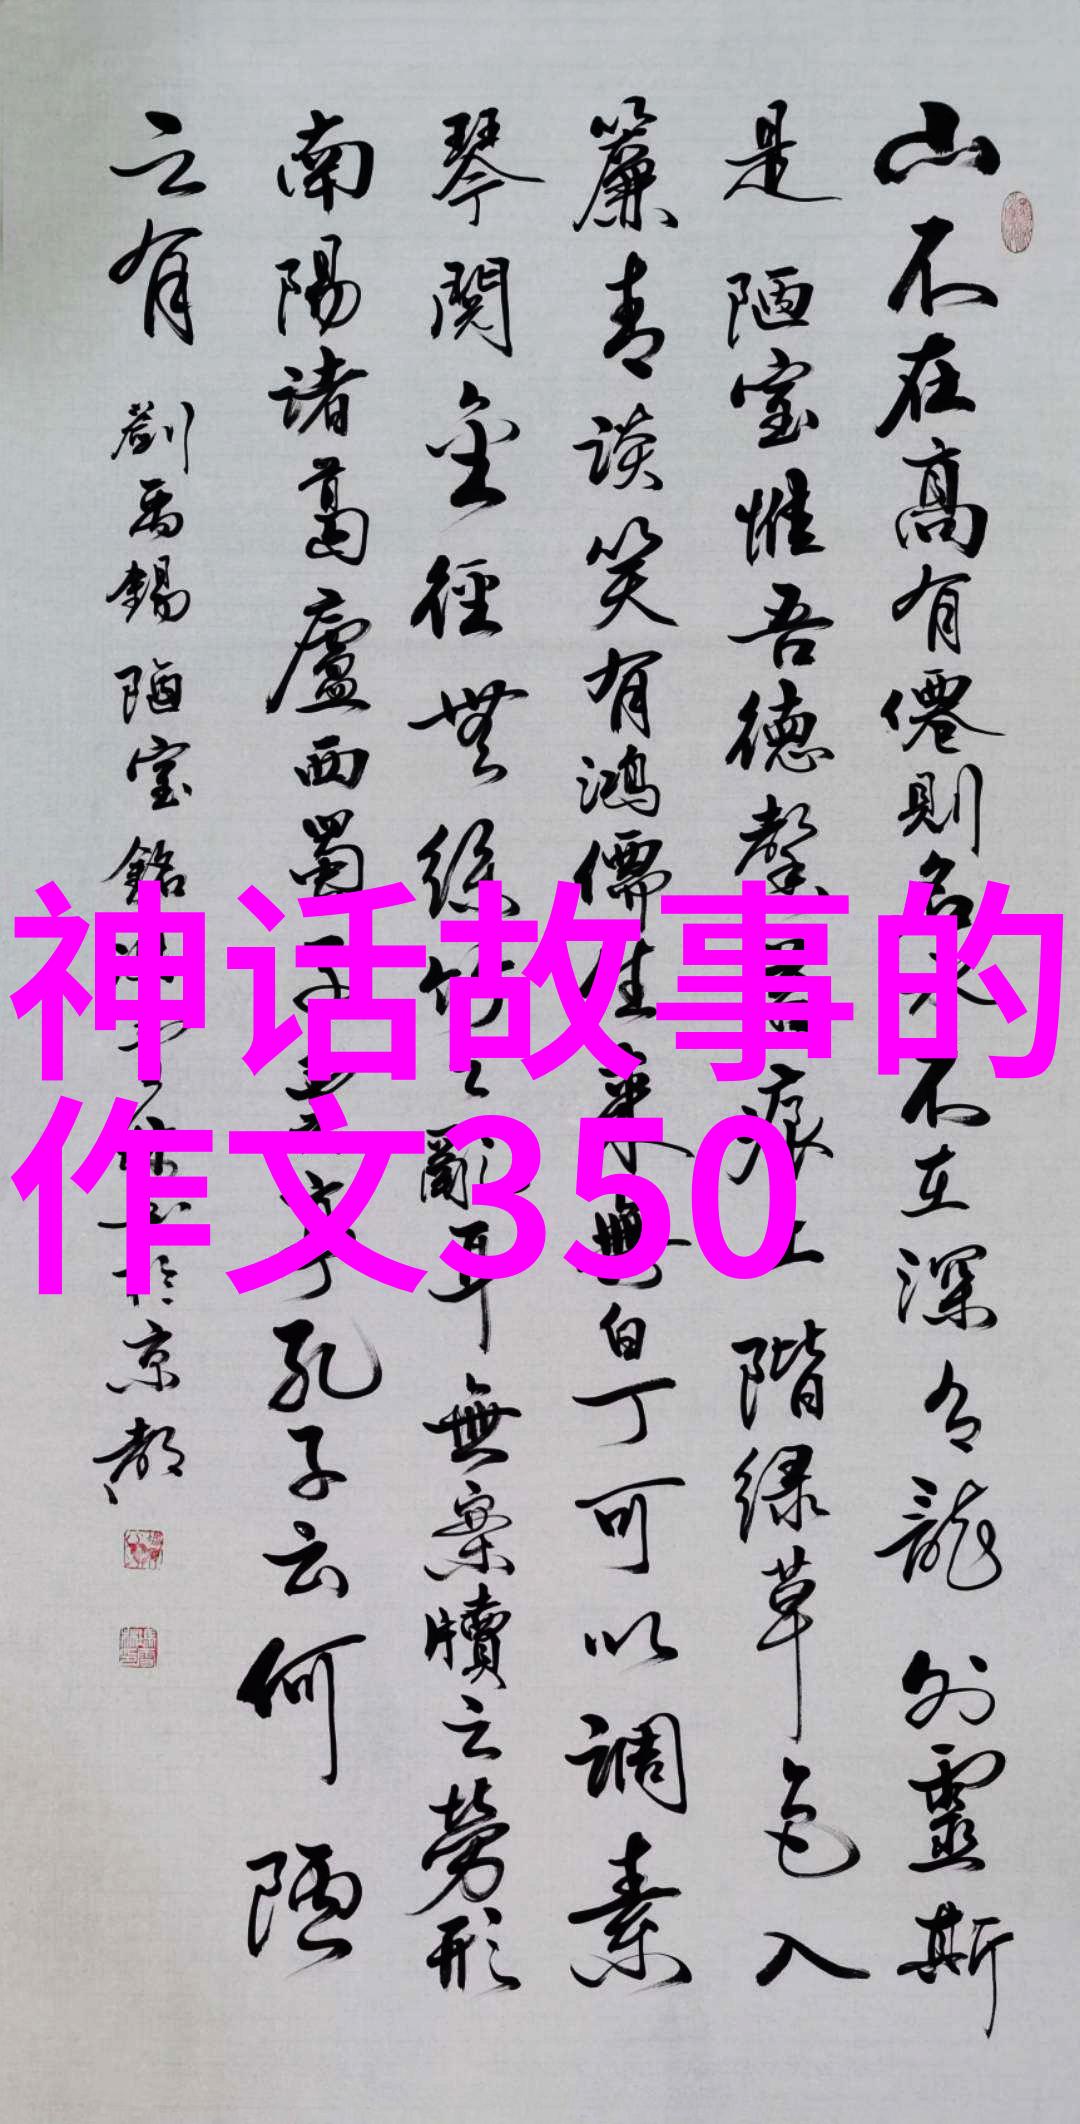 山不在高有僊則名水不在深有龍则靈斯
是陋室惟吾德馨苔痕上階绿草色入
簾青谈笑有鸿儒往來無白丁可以调素
琴閱金徑無丝竹之亂耳無案牘之勞形
南陽诸葛廬西蜀子雲亭孔子云何陋
之有 劉禹錫陋室銘 於京都
神话故事的
作文350